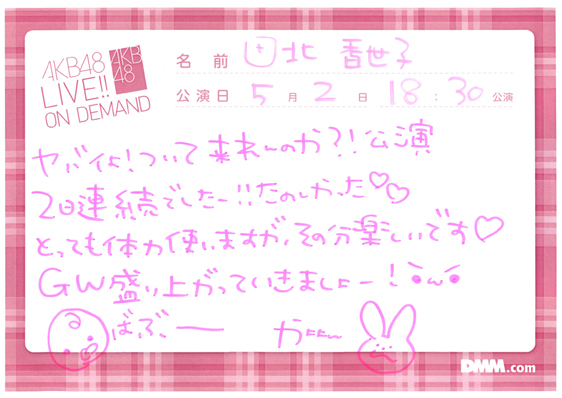 AKB48
LIVE!!
ON DEMAND
AKB
48
名前 田北 香世子
公演日 5月2日 18:30公演
ヤバイよ!ついて来れんのか?!公演
2日連続でしたー!!たのしかった♡♡
とっても体力使いますが、その分楽しいです♡
GW盛り上がっていきましょー!
ばぶ、ー
DMM.com